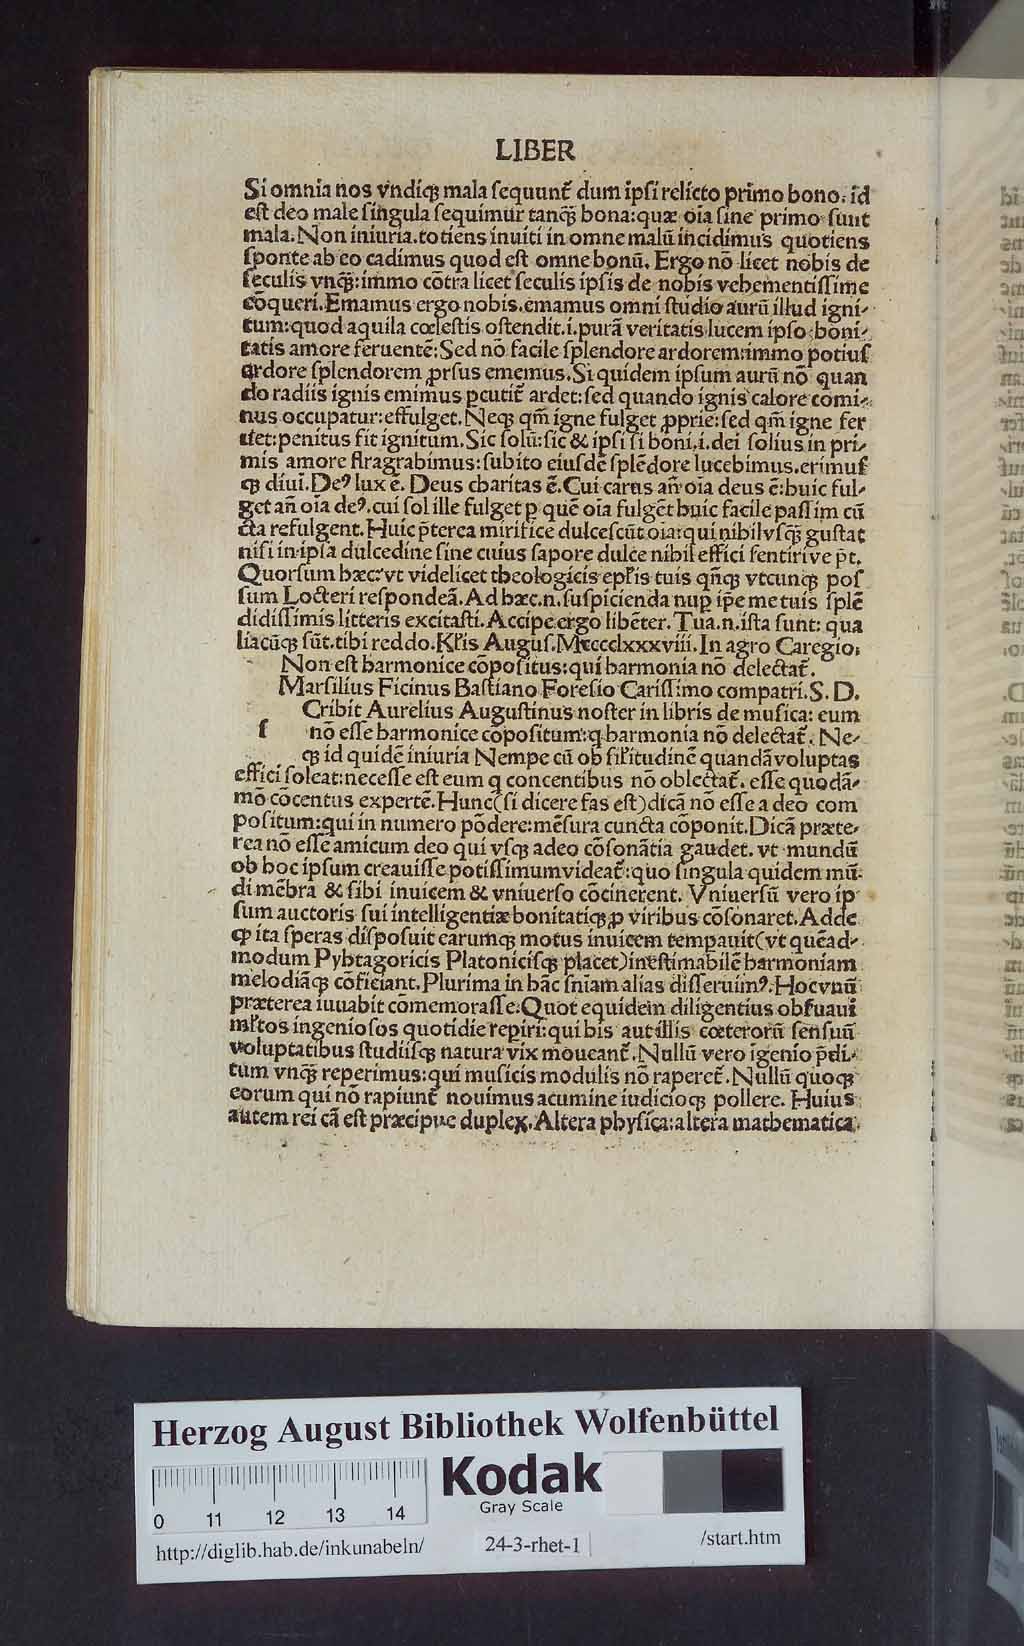 LIBER
Si omnia nos vndiqꝫ mala ſequunt᷑ dum ipſi relicto primo bono. id
eſt deo male ſingula ſequimur tanqꝫ̃ bona: quæ oĩa ſine primo ſunt
mala. Non iniuria. totiens inuiti in omne malũ incidimus quotiens
ſponte ab eo cadimus quod eſt omne bonũ. Ergo nõ licet nobis de
ſeculis vnqꝫ̃: immo cõtra licet ſeculis ipſis de nobis vehementiſſime
cõqueri. Emamus ergo nobis. emamus omni ſtudio aurũ illud igni⸗
tum: quod aquila cœleſtis oſtendit. i. purã veritatis lucem ipſo boni⸗
tatis amore feruentẽ: Sed nõ facile ſplendore ardorem: immo potiuſ
ardore ſplendorem ꝓrſus ememus. Si quidem ipſum aurũ nõ quan
do radiis ignis eminus ꝑcutit᷑ ardet: ſed quando ignis calore comi⸗
nus occupatur: effulget. Neqꝫ qm̃ igne fulget ꝓprie: ſed qm̃ igne fer
uet: penitus fit ignitum. Sic ſolũ: ſic & ipſi ſi boni. i. dei ſolius in pri⸗
mis amore flragrabimus: ſubito eiuſdẽ ſplẽdore lucebimus. erimuſ
qꝫ diui. Deꝰ lux ẽ. Deus charitas ẽ. Cui carus añ oĩa deus ẽ: huic ful⸗
get añ oĩa deꝰ. cui ſol ille fulget ꝑ quẽ oĩa fulgẽt huic facile paſſim cũ
cta refulgent. Huic p̃terea mirifice dulceſcũt oĩa: qui nihil vſqꝫ̃ guſtat
niſi in ipſa dulcedine ſine cuius ſapore dulce nihil effici ſentirive p̃t.
Quorſum hæc? vt videlicet theologicis epl̃is tuis qñqꝫ vtcunqꝫ poſ
ſum Locteri reſpondeã. Ad hæc .n. ſuſpicienda nuꝑ ip̃e me tuis ſplẽ
didiſſimis litteris excitaſti. Accipe ergo libẽter. Tua .n. iſta ſunt: qua
liacũqꝫ ſũt. tibi reddo. Kl̃is Auguſ. Mccccclxxxviii. In agro Caregio.
Non eſt harmonice cõpoſitus: qui harmonia nõ delectat᷑.
Marſilius Ficinus Baſtiano Foreſio Cariſſimo compatri. S. D.
ſ Cribit Aurelius Auguſtinus noſter in libris de muſica: eum
nõ eſſe harmonice cõpoſitum: q harmonia nõ delectat᷑. Ne⸗
qꝫ id quidẽ iniuria Nempe cũ ob ſil̃itudinẽ quandã voluptas
effici ſoleat: neceſſe eſt eum q concentibus nõ oblectat᷑. eſſe quodã⸗
mõ cõcentus expertẽ. Hunc (ſi dicere fas eſt) dicã nõ eſſe a deo com
poſitum: qui in numero põdere: mẽſura cuncta cõponit. Dicã præte⸗
rea nõ eſſe amicum deo qui vſqꝫ adeo cõſonãtia gaudet. vt mundũ
ob hoc ipſum creauiſſe potiſſimum videat᷑: quo ſingula quidem mũ⸗
di mẽbra & ſibi inuicem & vniuerſo cõcinerent. Vniuerſũ vero ip
ſum auctoris ſui intelligentiæ bonitatiqꝫ ꝓ viribus cõſonaret. Adde
ꝙ ita ſperas diſpoſuit earumqꝫ motus inuicem tempauit (vt quẽad⸗
modum Pythagoricis Platonicisqꝫ placet) ineſtimabilẽ harmoniam
melodiãqꝫ cõficiant. Plurima in hãc ſniam alias diſſeruimꝰ. Hoc vnũ
præterea iuuabit cõmemoraſſe. Quot equidem diligentius obſuaui
ml̃tos ingenioſos quotidie reꝑiri: qui his aut illis cœterorũ ſenſuũ
voluptatibus ſtudiiſqꝫ natura vix moueant᷑. Nullũ vero ĩgenio p̃di⸗
tum vnqꝫ̃ reperimus: qui muſicis modulis nõ raperet᷑. Nullũ quoqꝫ
eorum qui nõ rapiunt᷑ nouimus acumine iudicioqꝫ pollere. Huius
autem rei cã eſt præcipue duplex. Altera phyſica: altera mathematica.
Herzog August Bibliothek Wolfenbüttel
Kodak
Gray Scale
0 11 12 13 14
http://diglib.hab.de/inkunabeln/ 24-3-rhet-1 /start.htm